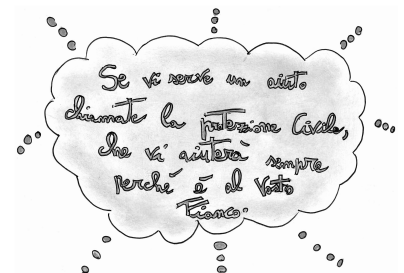 Se vi serve un aiuto
chiamate la protezione Civile,
che vi aiuterà sempre
perché è al Vostro
Fianco.